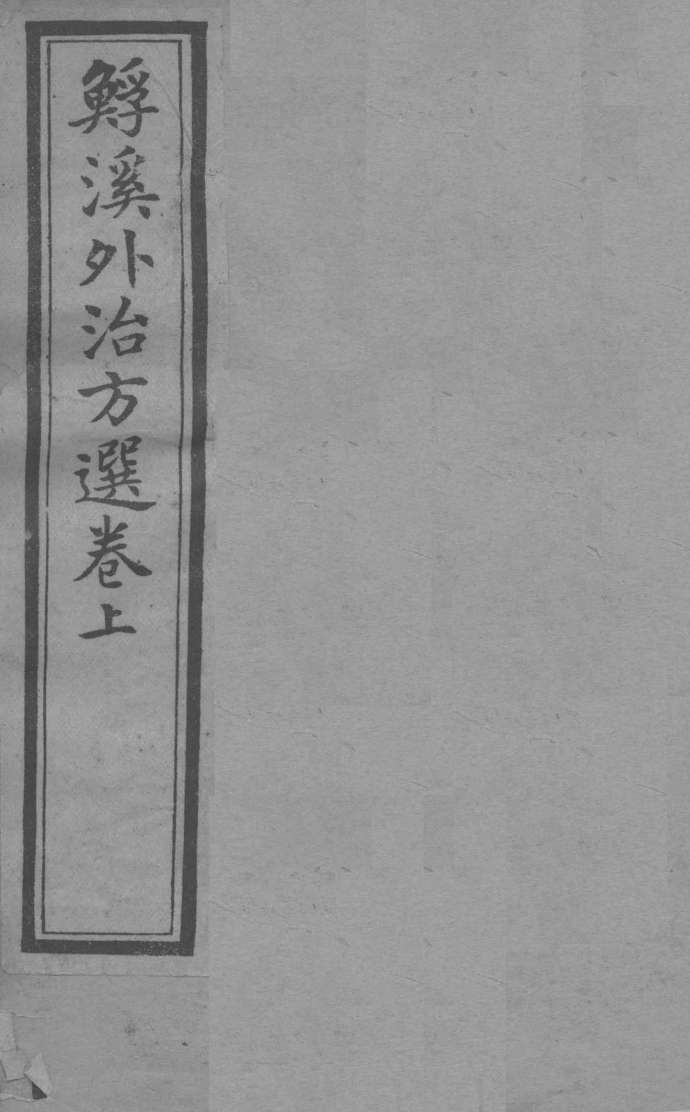 鯙溪外治方選卷上